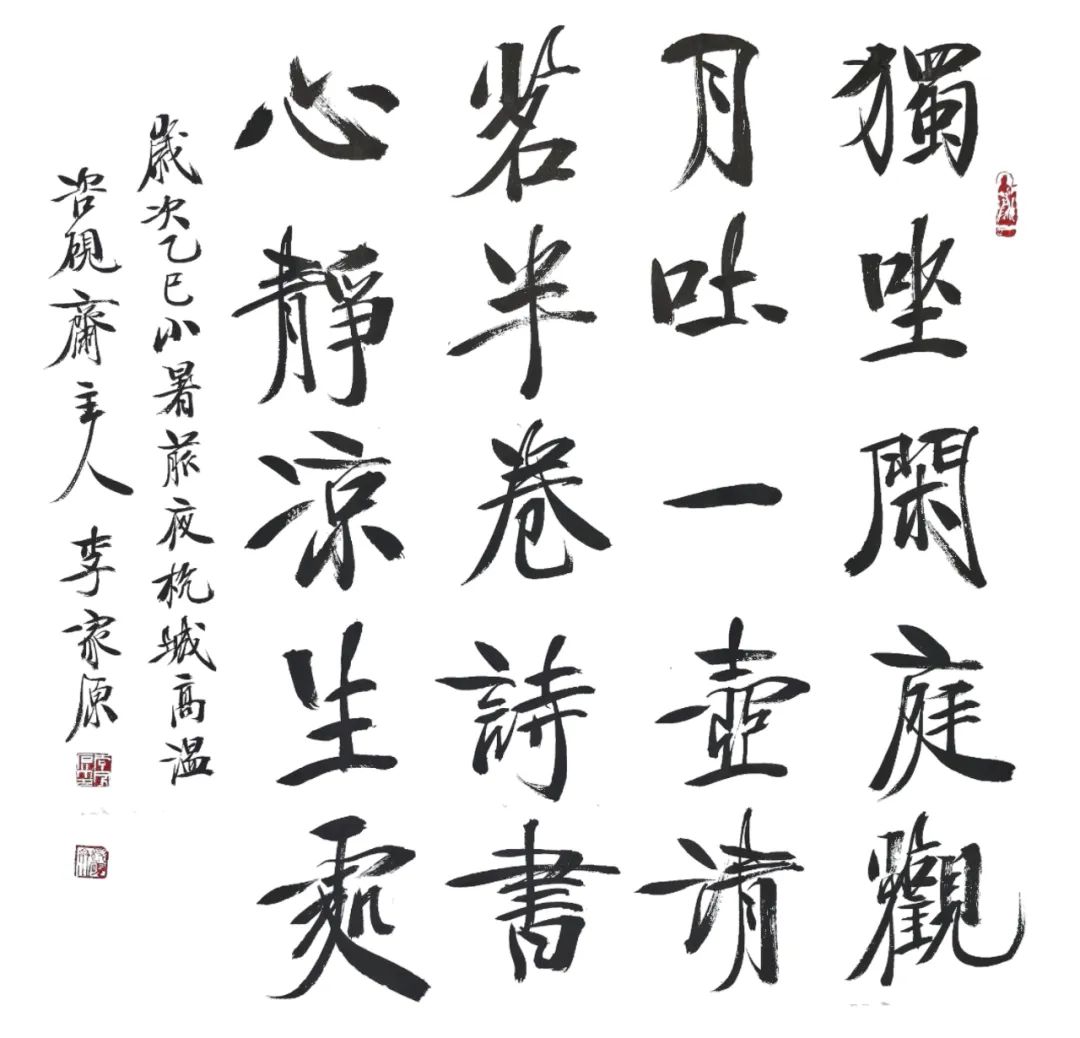 獨坐閑庭觀
月吐一壺清
茗半卷詩書
心靜凉生處
歲次乙巳小暑前夜杭城高溫
硯齋主人 李家原